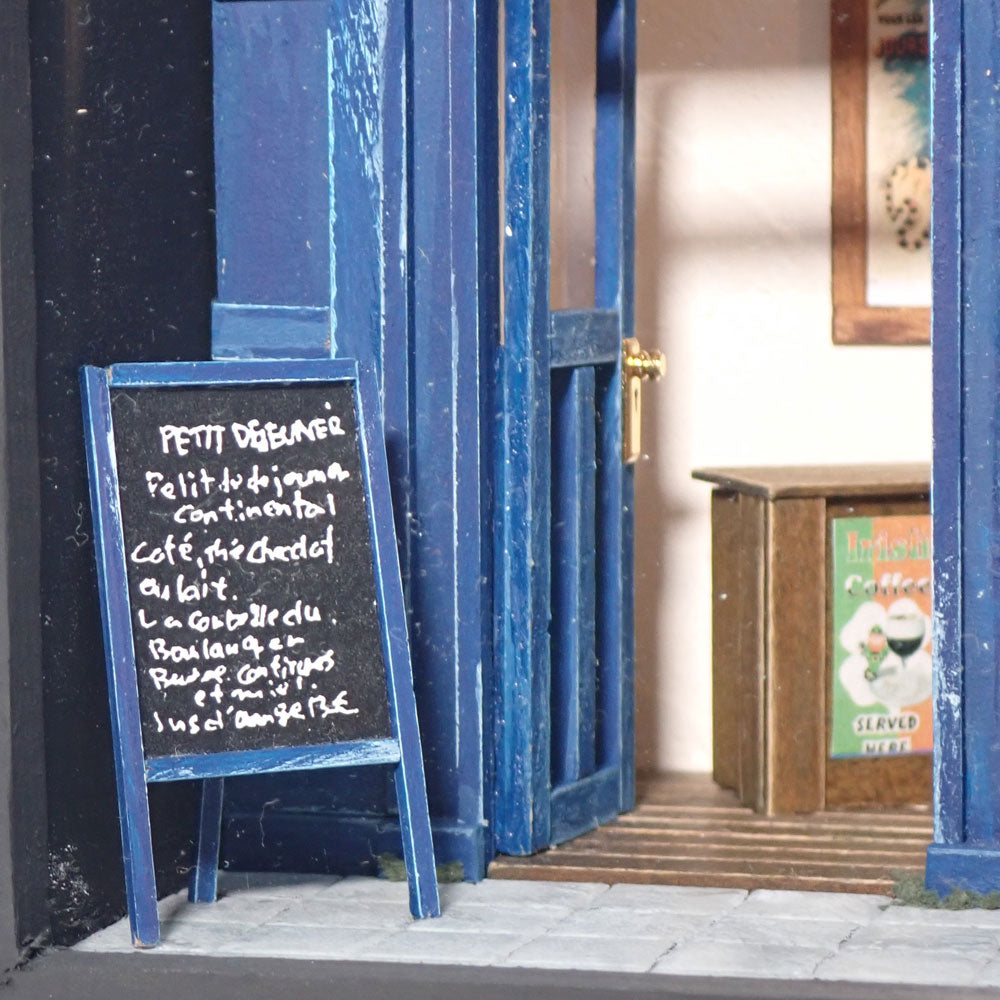 PETIT DÉJEUNER
Petit
continental
Café, thé chocolat
au lait.
La corbeille du
Boulanger
Beurre confitures
et miel
Jus d'orange 13€
JOURS
Irish
Coffee
SERVED
HERE